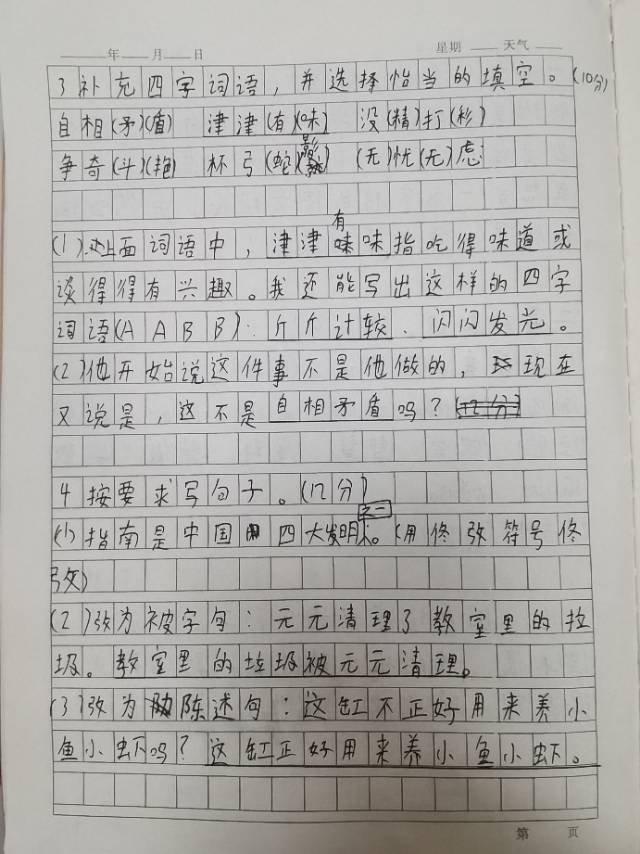 年 月 日 星期 天气
3补充四字词语，并选择恰当的填空。(10分)
自相(矛)(盾) 津津(有)(味) 没(精)打(彩)
争奇(斗)(艳) 杯弓(蛇)(影) (无)忧(无)虑
(1)上面词语中，津津有味指吃得味道或
读得得有兴趣。我还能写出这样的四字
词语(AABB)：斤斤计较、闪闪发光。
(2)他开始说这件事不是他做的，现在
又说是，这不是自相矛盾吗？(12分)
4按要求写句子。(12分)
(1)指南是中国四大发明之一。(用修改符号修
改)
(2)改为被字句：元元清理了教室里的垃
圾。教室里的垃圾被元元清理。
(3)改为陈述句：这缸不正好用来养小
鱼小虾吗？这缸正好用来养小鱼小虾。
第 页